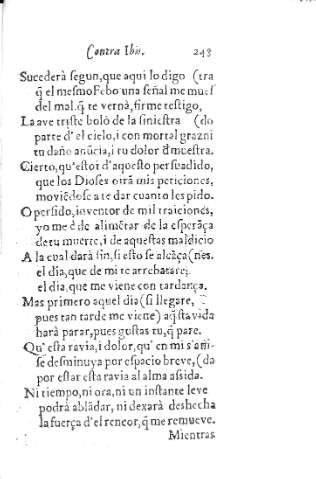 Contra Ibin. 243
Sucederà segun, que aqui lo digo (tra
q̃ el mesmo Febo una señal me mues
del mal. q̃ te vernà, firme testigo,
La ave triste bolò de la siniestra (do
parte d'el cielo, i con mortal grazni
tu daño anũcia, i tu dolor d̃muestra.
Cierto, qu'estoi d'aquesto persuadido,
que los Dioses oirã mis peticiones,
moviẽdose a te dar cuanto les pido.
O perfido, inventor de mil traiciones,
yo me è de alimẽtar de la esperãça
de tu muerte, i de aquestas maldicio
A la cual darà fin, si esto se alcãça (nes.
el dia, que de mi te arrebatare;
el dia, que me viene con tardança.
Mas primero aquel dia (si llegare,
pues tan tarde me viene) aq̃sta vida
harà parar, pues gustas tu, q̃ pare.
Qu' esta ravia, i dolor, qu' en mi s'ani-
se desminuya por espacio breve, (da
por estar esta ravia al alma assida.
Ni tiempo, ni ora, ni un instante leve
podrà ablãdar, ni dexarà deshecha
la fuerça d'el rencor, q̃ me remueve.
Mientras